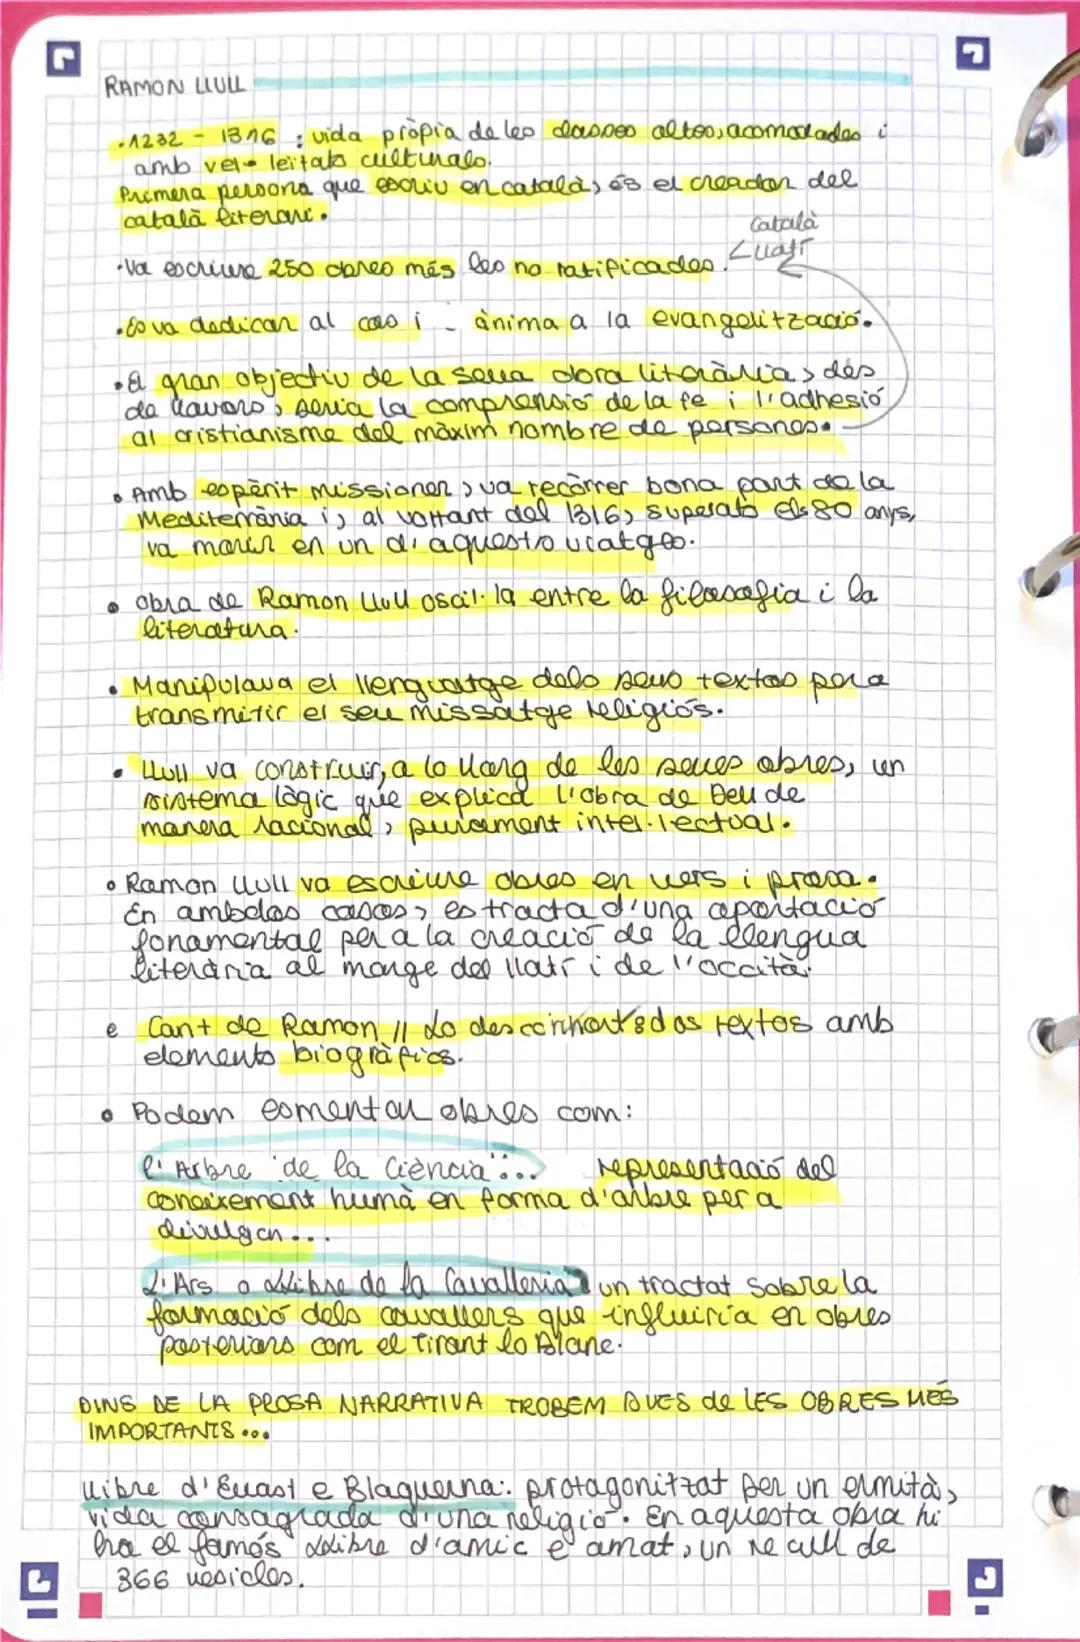 RAMON LLULL
· 1232 - 1316 : vida pròpia de les classes altes, acomodades i
amb vel·leitats culturals.
Primera persona que escriu en català, és el creador del
català literari.
Català
· Va escriure 250 obres més les no ratificades. < Llatí
· Es va dedicar al cos i ànima a la evangelització.
· El gran objectiu de la seua obra literària, des
de llavors, seria la comprensió de la fe i l'adhesió
al cristianisme del màxim nombre de persones.
· Amb esperit missioner, va recòrrer bona part de la
Mediterrània i, al voltant del 1316, superats els 80 anys,
va morir en un d'aquests viatges.
· Obra de Ramon Llull oscil·la entre la filosofia i la
literatura.
· Manipulava el llenguatge dels seus textos per a
transmitir el seu missatge religiós.
· Llull va construir, a lo llarg de les seues obres, un
sistema lògic que explica l'obra de Deu de
manera racional, purament intel·lectual.
· Ramon Llull va escriure obres en vers i prosa.
En ambdos casos, es tracta d'una aportació
fonamental per a la creació de la llengua
literària al marge del llatí i de l'occità.
· Cant de Ramon // Lo desconhort: dos textos amb
elements biogràfics.
· Podem esmentar obres com:
l'Arbre de la Ciència... representació del
coneixement humà en forma d'arbre per a
divulgar...
L'Ars o Llibre de la Cavalleria un tractat sobre la
formació dels cavallers que influiria en obres
posteriors com el Tirant lo Blanc.
DINS DE LA PROSA NARRATIVA TROBEM DUES de LES OBRES MÉS
IMPORTANTS...
Llibre d'Evast e Blaquerna: protagonitzat per un ermità,
vida consagrada d'una religió. En aquesta obra hi
ha el famós Llibre d'amic e amat, un recull de
366 versicles.